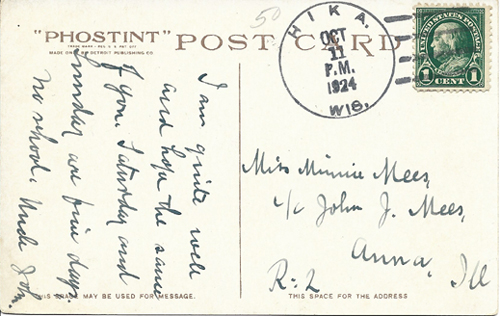 50
"PHOSTINT" POST CARD
TRADE MARK - REG. U.S. PAT. OFF.
MADE ONLY BY DETROIT PUBLISHING CO.
HIKA.
OCT
11
P.M.
1924
WIS.
UNITED STATES POSTAGE
1 CENT 1
I am quite well
and hope the same
of you. Saturday and
Sunday are fine days.
No school. Uncle John.
Miss Minnie Mees,
c/o John J. Mees,
Anna, Ill
R: 2
THIS SPACE MAY BE USED FOR MESSAGE.
THIS SPACE FOR THE ADDRESS